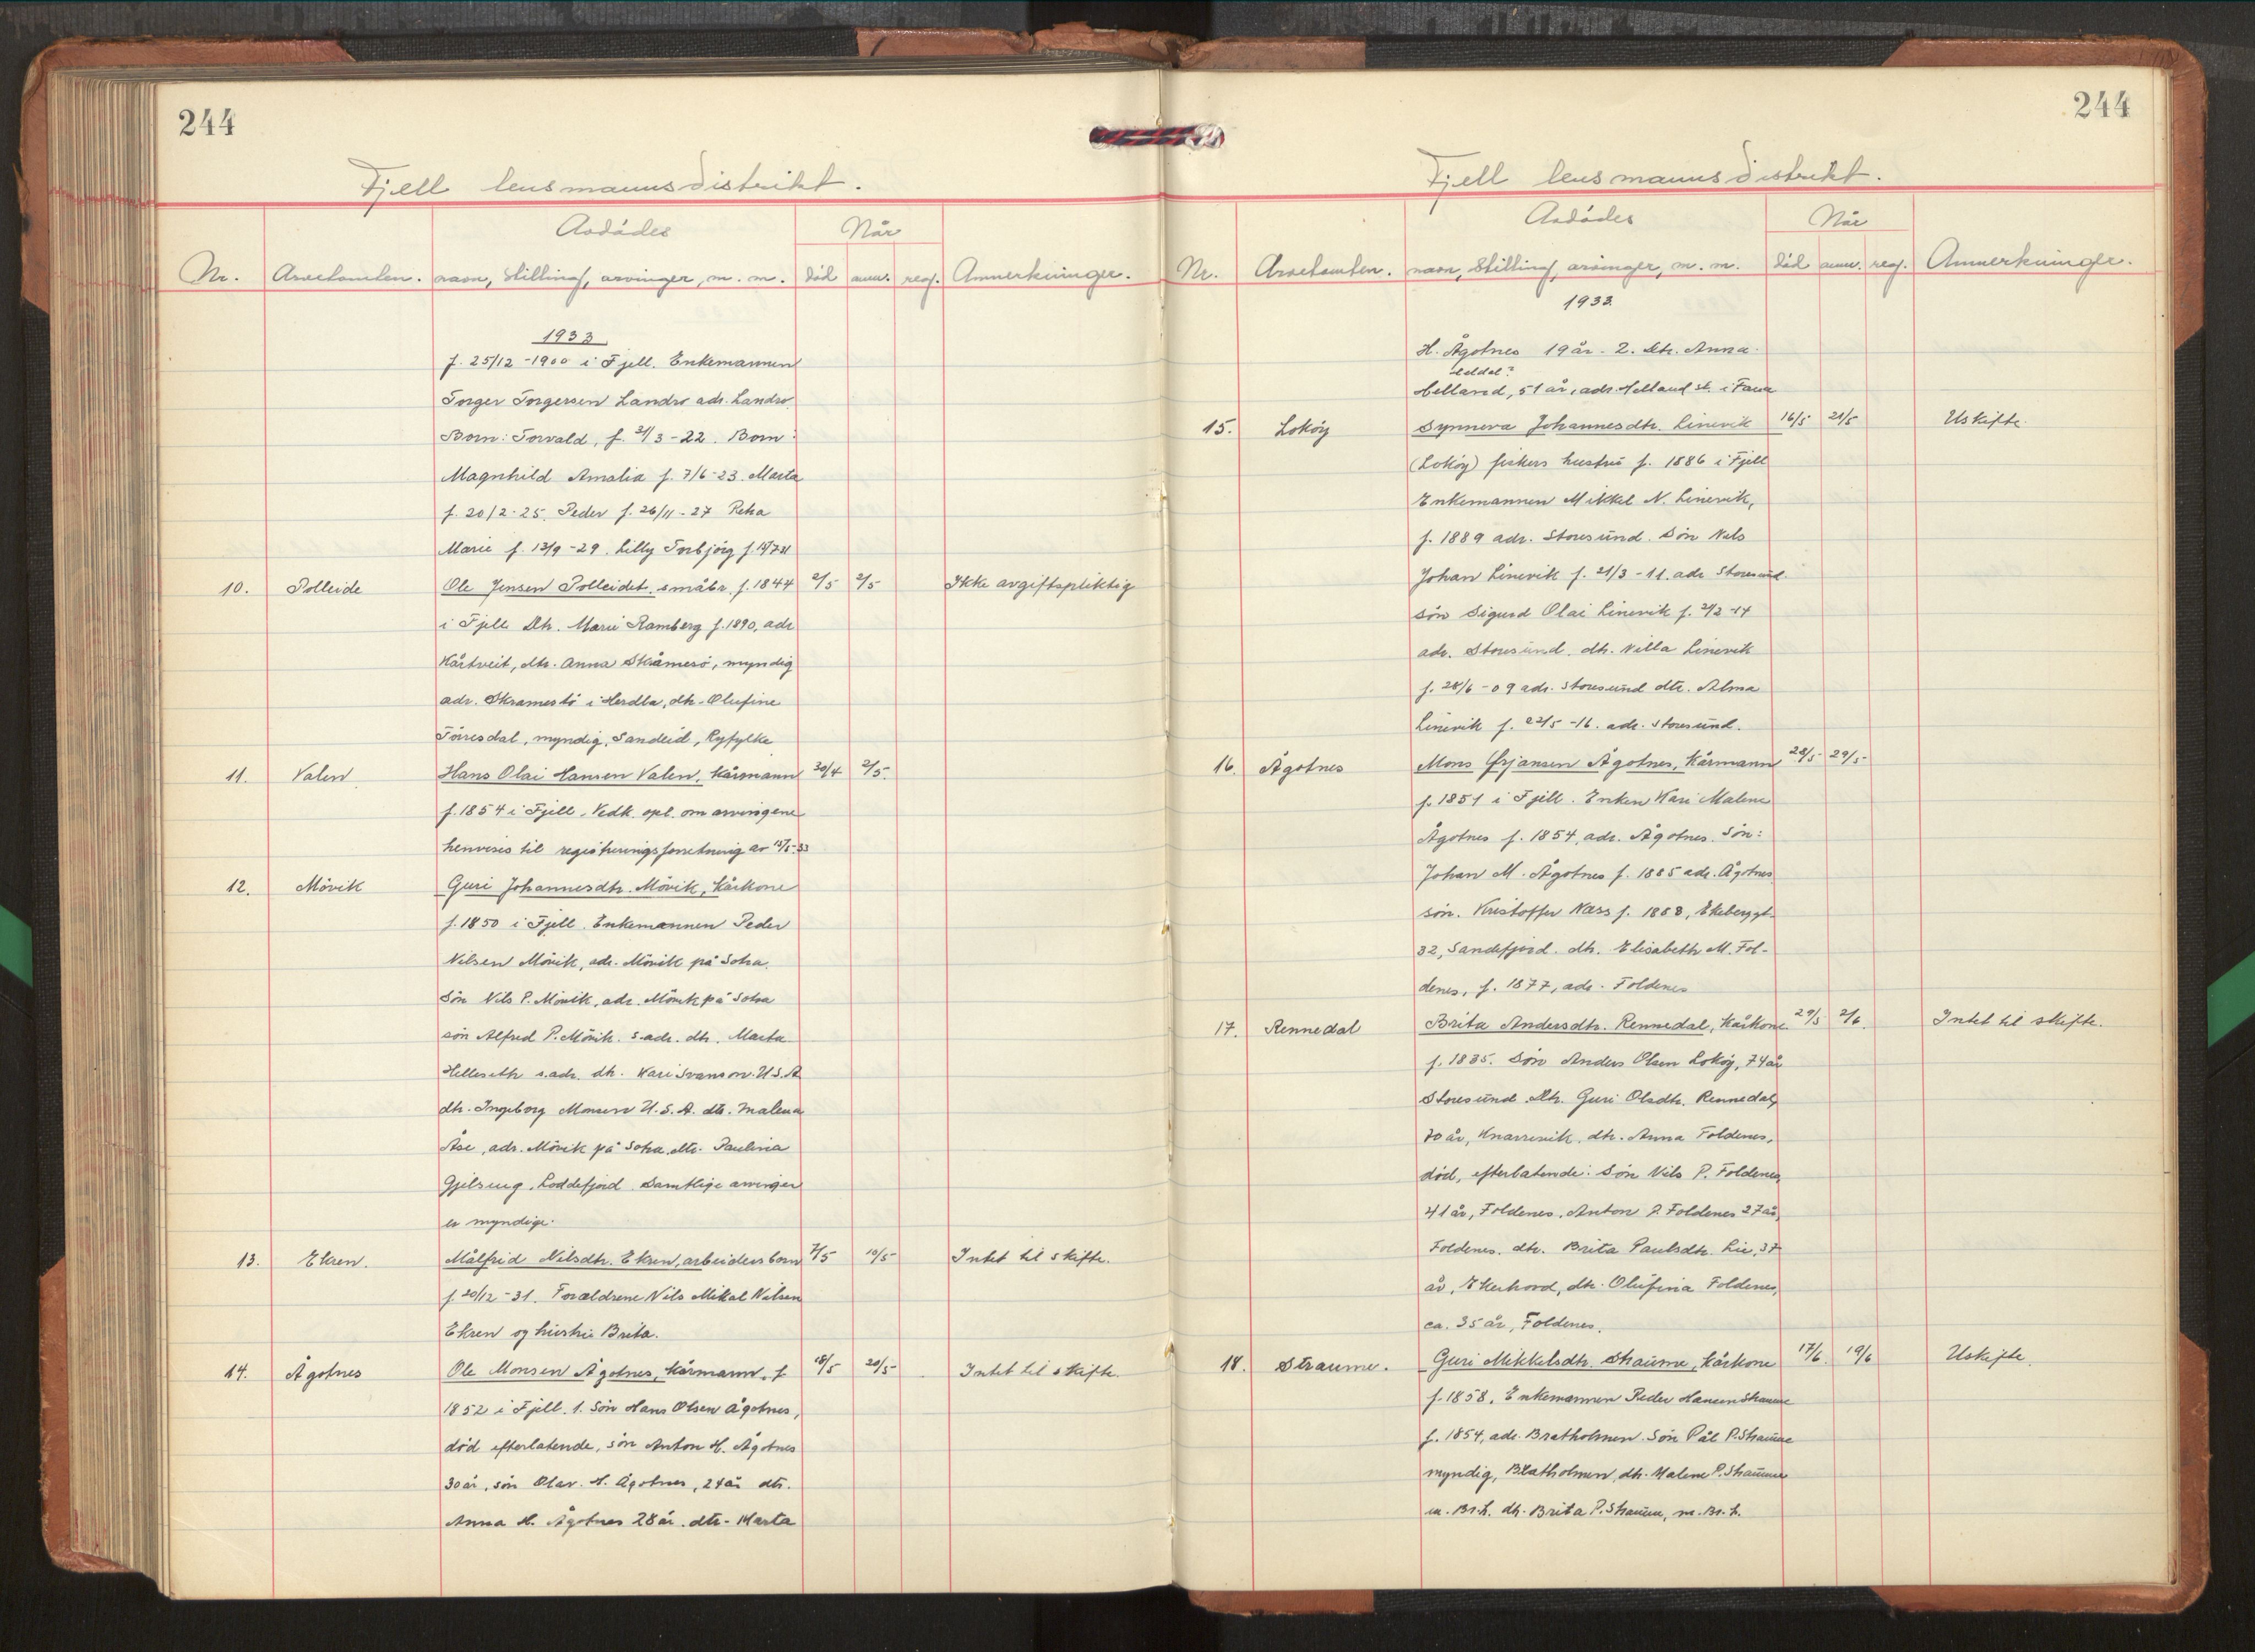 244
Fjell lensmannsdistrikt.
Avdødes
Når
Nr. Arvetomten. navn, stilling, arvinger, m. m. död anm. reg. Anmerkninger.
1933
f. 25/12 - 1900 i Fjell. Enkemannen
Torger Torgersen Landro adr. Landro
Born: Torvald, f. 31/3 - 22. Born:
Magnhild Amalia f. 7/6 - 23. Marta
f. 20/2 - 25. Peder f. 26/11 - 27 Petra
Marie f. 13/9 - 29. Lilly Torbjörg f.
10. Polleide Ole Jensen Polleidet, småbr. f. 1844 2/5 2/5 Ikke avgiftspliktig
i Fjell Dtr. Marie Ramberg f. 1890, adr
Kårtveit, dtr. Anna myndig
adr. Skramestö i Herdla, dtr. Olufine
Törresdal, myndig, Sandeid, Ryfylke
11. Valen Hans Olai Hansen Valen, kårmann 30/4 2/5.
f. 1854 i Fjell. Vedk. opl. om arvingene
henvises til registreringsforretning av 15/5-33
12. Mövik Guri Johannesdtr. Mövik, kårkone
f. 1850 i Fjell. Enkemannen Peder
Nilsen Mövik, adr. Mövik på Sotra.
Sön Nils P. Mövik, adr. Mövik på Sotra
sön Alfred P. Mövik. s. adr. dtr. Marta
Helleseth s. adr. dtr. Kari Svanson U.S.A
dtr. Ingeborg Monsen U.S.A. dtr. Malena
Åse, adr. Mövik på Sotra. dtr. Paulina
Gjelseng, Loddefjord. Samtlige arvinger
er myndige.
13. Ekren. Målfrid Nilsdtr. Ekren, arbeiders born 7/5 10/5 Intet til skifte.
f. 20/12 - 31. Foreldrene Nils Mikal Nilsen
Ekren og hustru Brita.
14. Ågotnes Ole Monsen Ågotnes, kårmann, f. 18/5 20/5 Intet til skifte.
1852 i Fjell. 1. Sön Hans Olsen Ågotnes,
död efterlatende, sön Anton H. Ågotnes
30 år, sön Olav. H. Ågotnes, 24 år dtr.
Anna H. Ågotnes 28 år. dtr. Marta
244
Fjell lensmannsdistrikt.
Avdødes
Når
Nr. Arvetomten. navn, stilling, arvinger, m. m. död anm. reg. Anmerkninger.
1933.
H. Ågotnes 19 år. 2. dtr. Anna
Helland, 51 år, adr. Helland st. i Fana
15. Loköy Synneva Johannesdtr. Linevik 16/5 21/5 Uskifte.
(Loköy) fiskers hustru f. 1886 i Fjell
Enkemannen Mikkel N. Linevik,
f. 1889 adr. Storesund. Sön Nils
Johan Linevik f. 21/3 - 11. adr Storesund.
sön Sigurd Olai Linevik f. 2/3 - 14
adr. Storesund. dtr. Nilla Linevik
f. 28/6 - 09 adr. Storesund dtr. Alma
Linevik f. 22/5 - 16. adr. Storesund.
16. Ågotnes Mons Ørjansen Ågotnes, kårmann 28/5 29/5
f. 1851 i Fjell. Enken Kari Malene
Ågotnes f. 1854, adr. Ågotnes. Sön:
Johan M. Ågotnes f. 1885 adr. Ågotnes
sön. Kristoffer Næss f. 1888, Ekeberggt.
32, Sandefjord. dtr. Elisabeth M. Fol-
denes, f. 1877, adr. Foldenes
17. Rennedal Brita Andersdtr. Rennedal, kårkone 29/5 2/6. Intet til skifte.
f. 1835. Sön Anders Olsen Loköy, 74 år
Storesund. Dtr. Guri Olsdtr. Rennedal,
70 år, Knarrevik, dtr. Anna Foldenes,
död, efterlatende: Sön Nils P. Foldenes,
41 år, Foldenes. Anton P. Foldenes 27 år,
Foldenes. dtr. Brita Paulsdtr. Lie, 37
år, Ekerhovd, dtr. Olufina Foldenes,
ca. 35 år, Foldenes.
18. Straume. Guri Mikkelsdtr. Straume, kårkone 17/6. 19/6 Uskifte.
f. 1858. Enkemannen Peder Hansen Straume
f. 1854, adr. Bratholmen. Sön Pål P. Straume
myndig, Bratholmen, dtr. Malene P. Straume
m. Br.h. dtr. Brita P. Straume, m. Br. h.